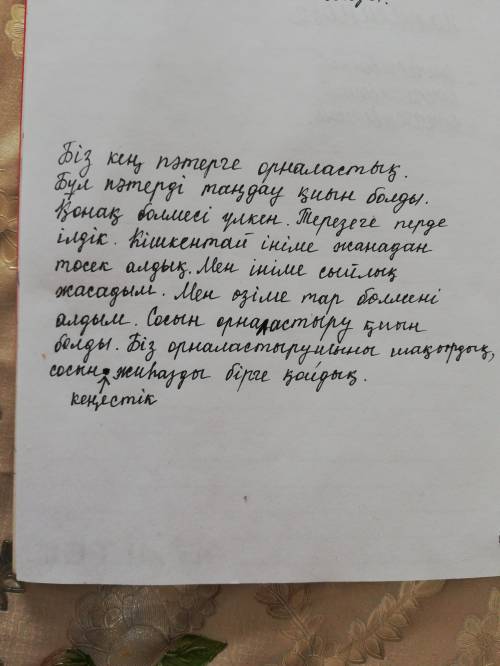 Біз кең пәтерге орналастық.
Бұл пәтерді таңдау қиын болды.
Қонақ бөлмесі үлкен. Терезеге перде
ілдік. Кішкентай ініме жаңадан
төсек алдық. Мен ініме сыйлық
жасадым. Мен өзіме тар бөлмені
алдым. Сосын орналастыру қиын
болды. Біз орналастырушыны шақырдық,
сосын жиһазды бірге қойдық.
кеңестік